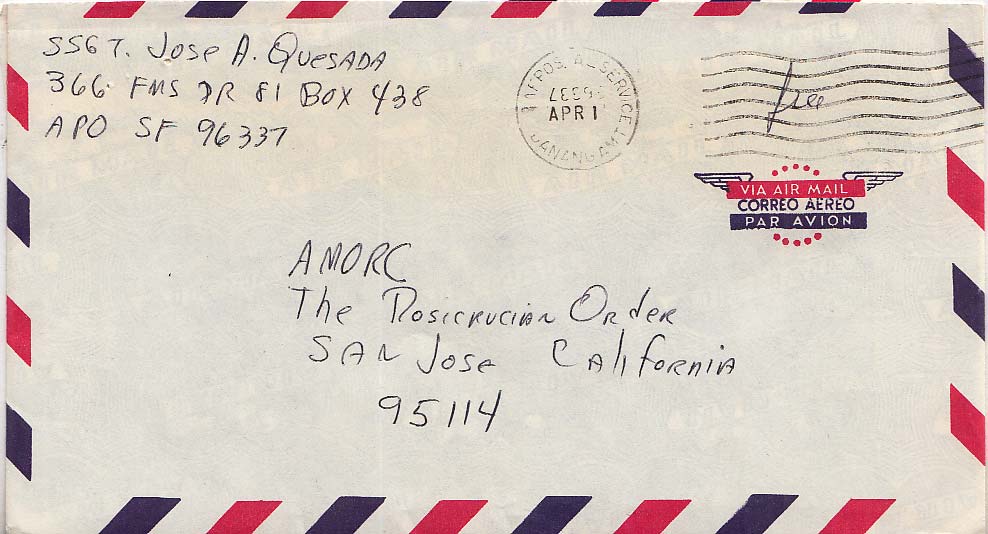 SSGT. Jose A. Quesada
366 FMS DR 81 Box 438
APO SF 96337
POSTAL SERVICE
APR 1
DANANG AMT
free
VIA AIR MAIL
CORREO AEREO
PAR AVION
AMORC
The Rosicrucian Order
SAN Jose California
95114